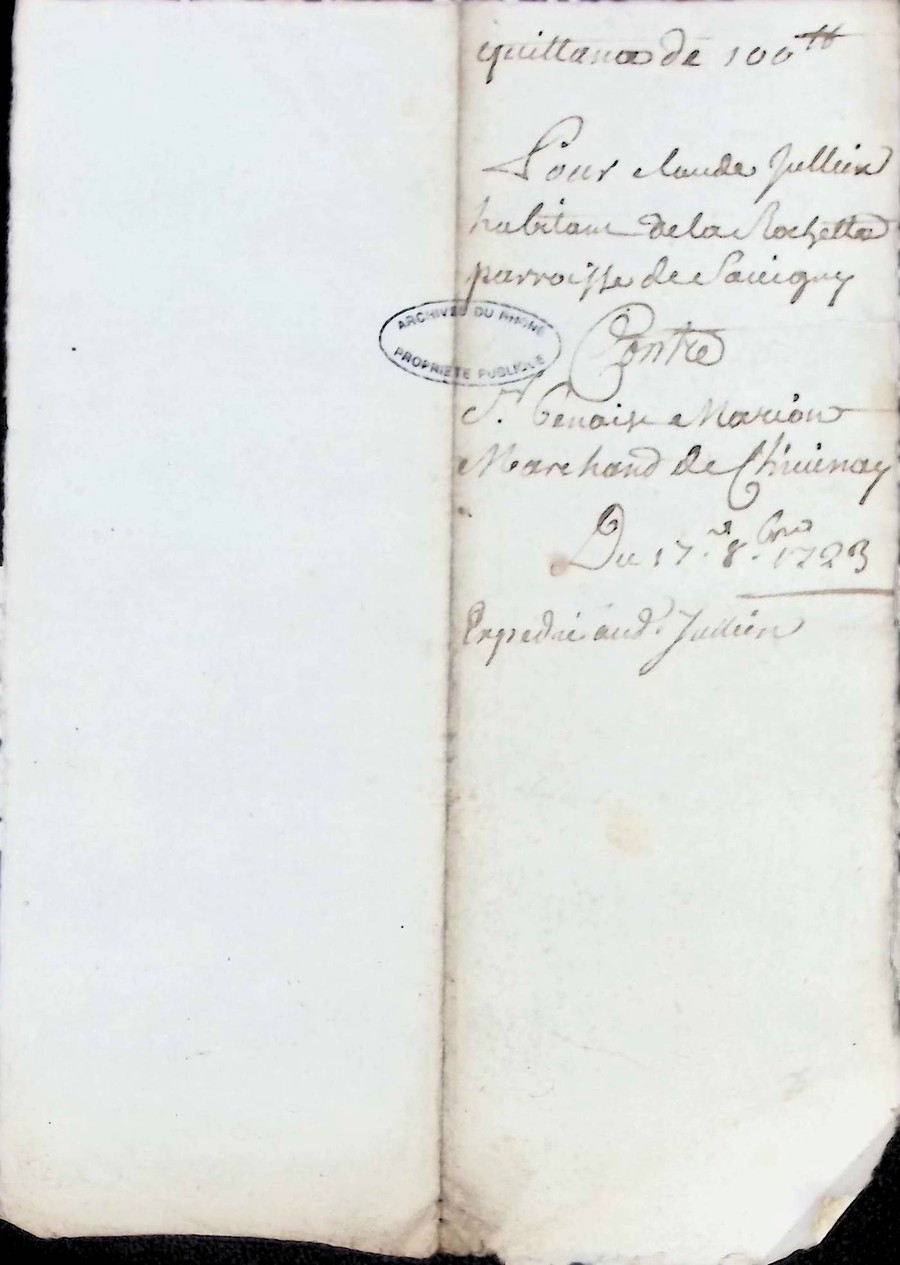 quittance de 100 tt
Pour claude Jullien
habitant de la Rochette
parroisse de Sauigny
ARCHIVES DU RHÔNE
PROPRIÉTÉ PUBLIQUE
Contre
Sr. Benoist Marion
Marchand de Cheuinay
Du 17.e 8.bre 1723
Expedié aud. Jullien